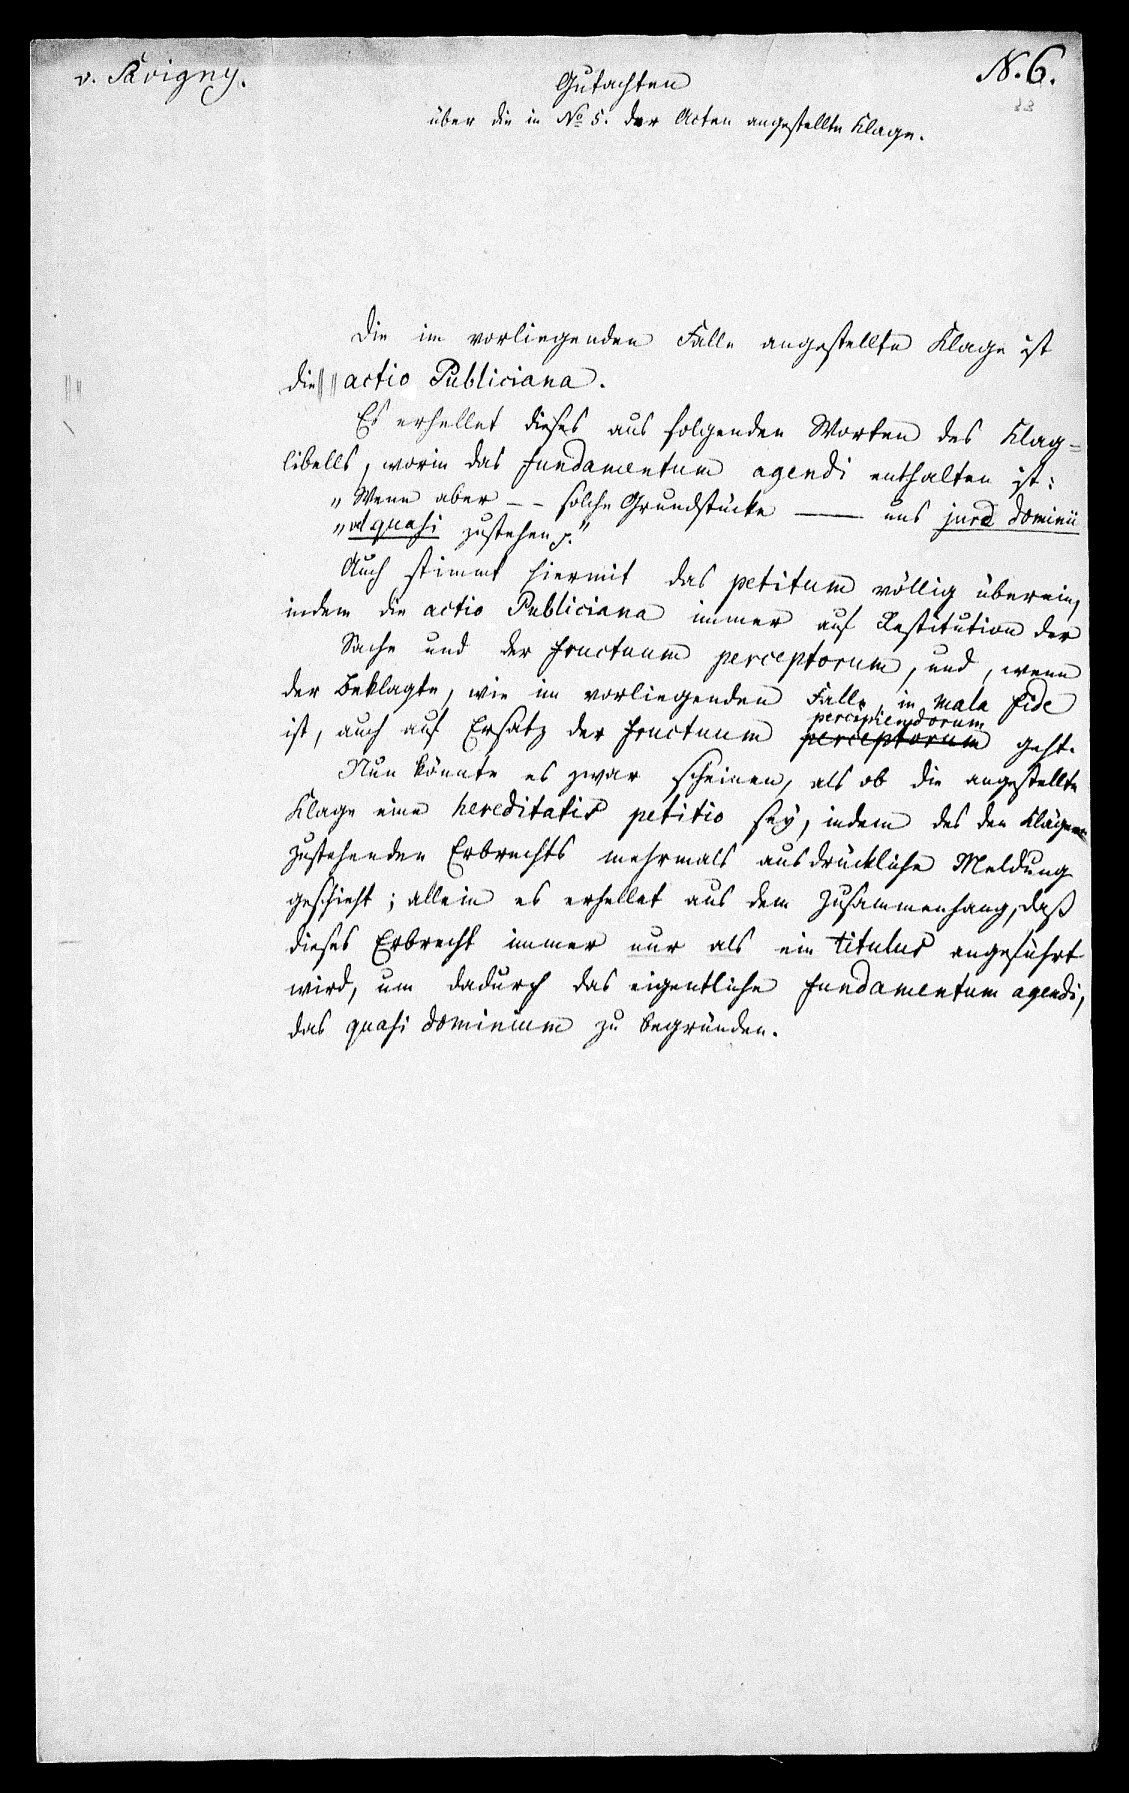 v. Savigny.
N. 6.
83
Gutachten
über die in No 5. der Acten angestellte Klage.
Die im vorliegenden Falle angestellte Klage ist
die actio Publiciana.
Es erhellet dieses aus folgenden Worten des Klag=
libells, worin das fundamentum agendi enthalten ist:
„Wenn aber –– solche Grundstücke —— uns jure dominii
„vel quasi zustehen p."
Auch stimmt hiermit das petitum völlig überein,
indem die actio Publiciana immer auf Restitution der
Sache und der fructuum perceptorum, und, wenn
der Beklagte, wie im vorliegenden Falle, in mala fide
percipiendorum
ist, auch auf Ersatz der fructuum perceptorum geht.
Nun könnte es zwar scheinen, als ob die angestellte
Klage eine hereditatis petitio sey, indem des den Klägern
zustehenden Erbrechts mehrmals ausdrückliche Meldung
geschieht; allein es erhellet aus dem Zusammenhang, daß
dieses Erbrecht immer nur als ein titulus angeführt
wird, um dadurch das eigentliche fundamentum agendi,
das quasi dominium zu begründen.